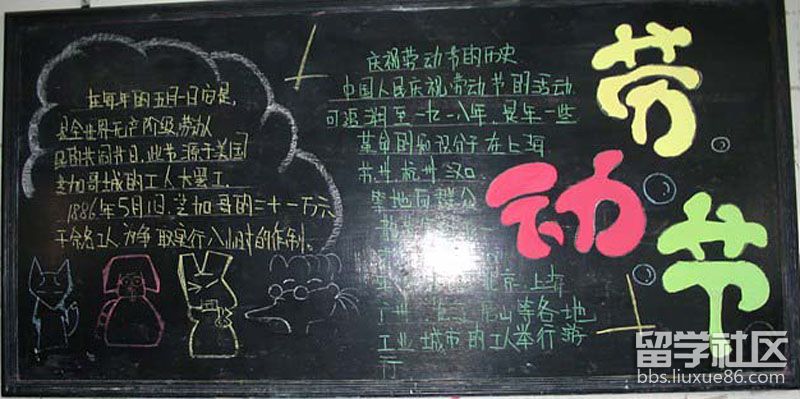 在每年的五月一日它是,
是全世界无产阶级,劳动人
民的共同节日,此节源于美国
芝加哥城的工人大罢工,
1886年5月1日,芝加哥的二十一万六
千余名工人为争取实行八小时的工作制。
庆祝劳动节的历史
中国人民庆祝劳动节的活动
可追溯至一九一八年,是年一些
革命的知识分子在上海
苏州 杭州 汉口
等地向群分
北京.上海
广州 唐山等各地
工业城市的工人举行游
行
劳
动
节
留学社区
bbs.liuxue86.com